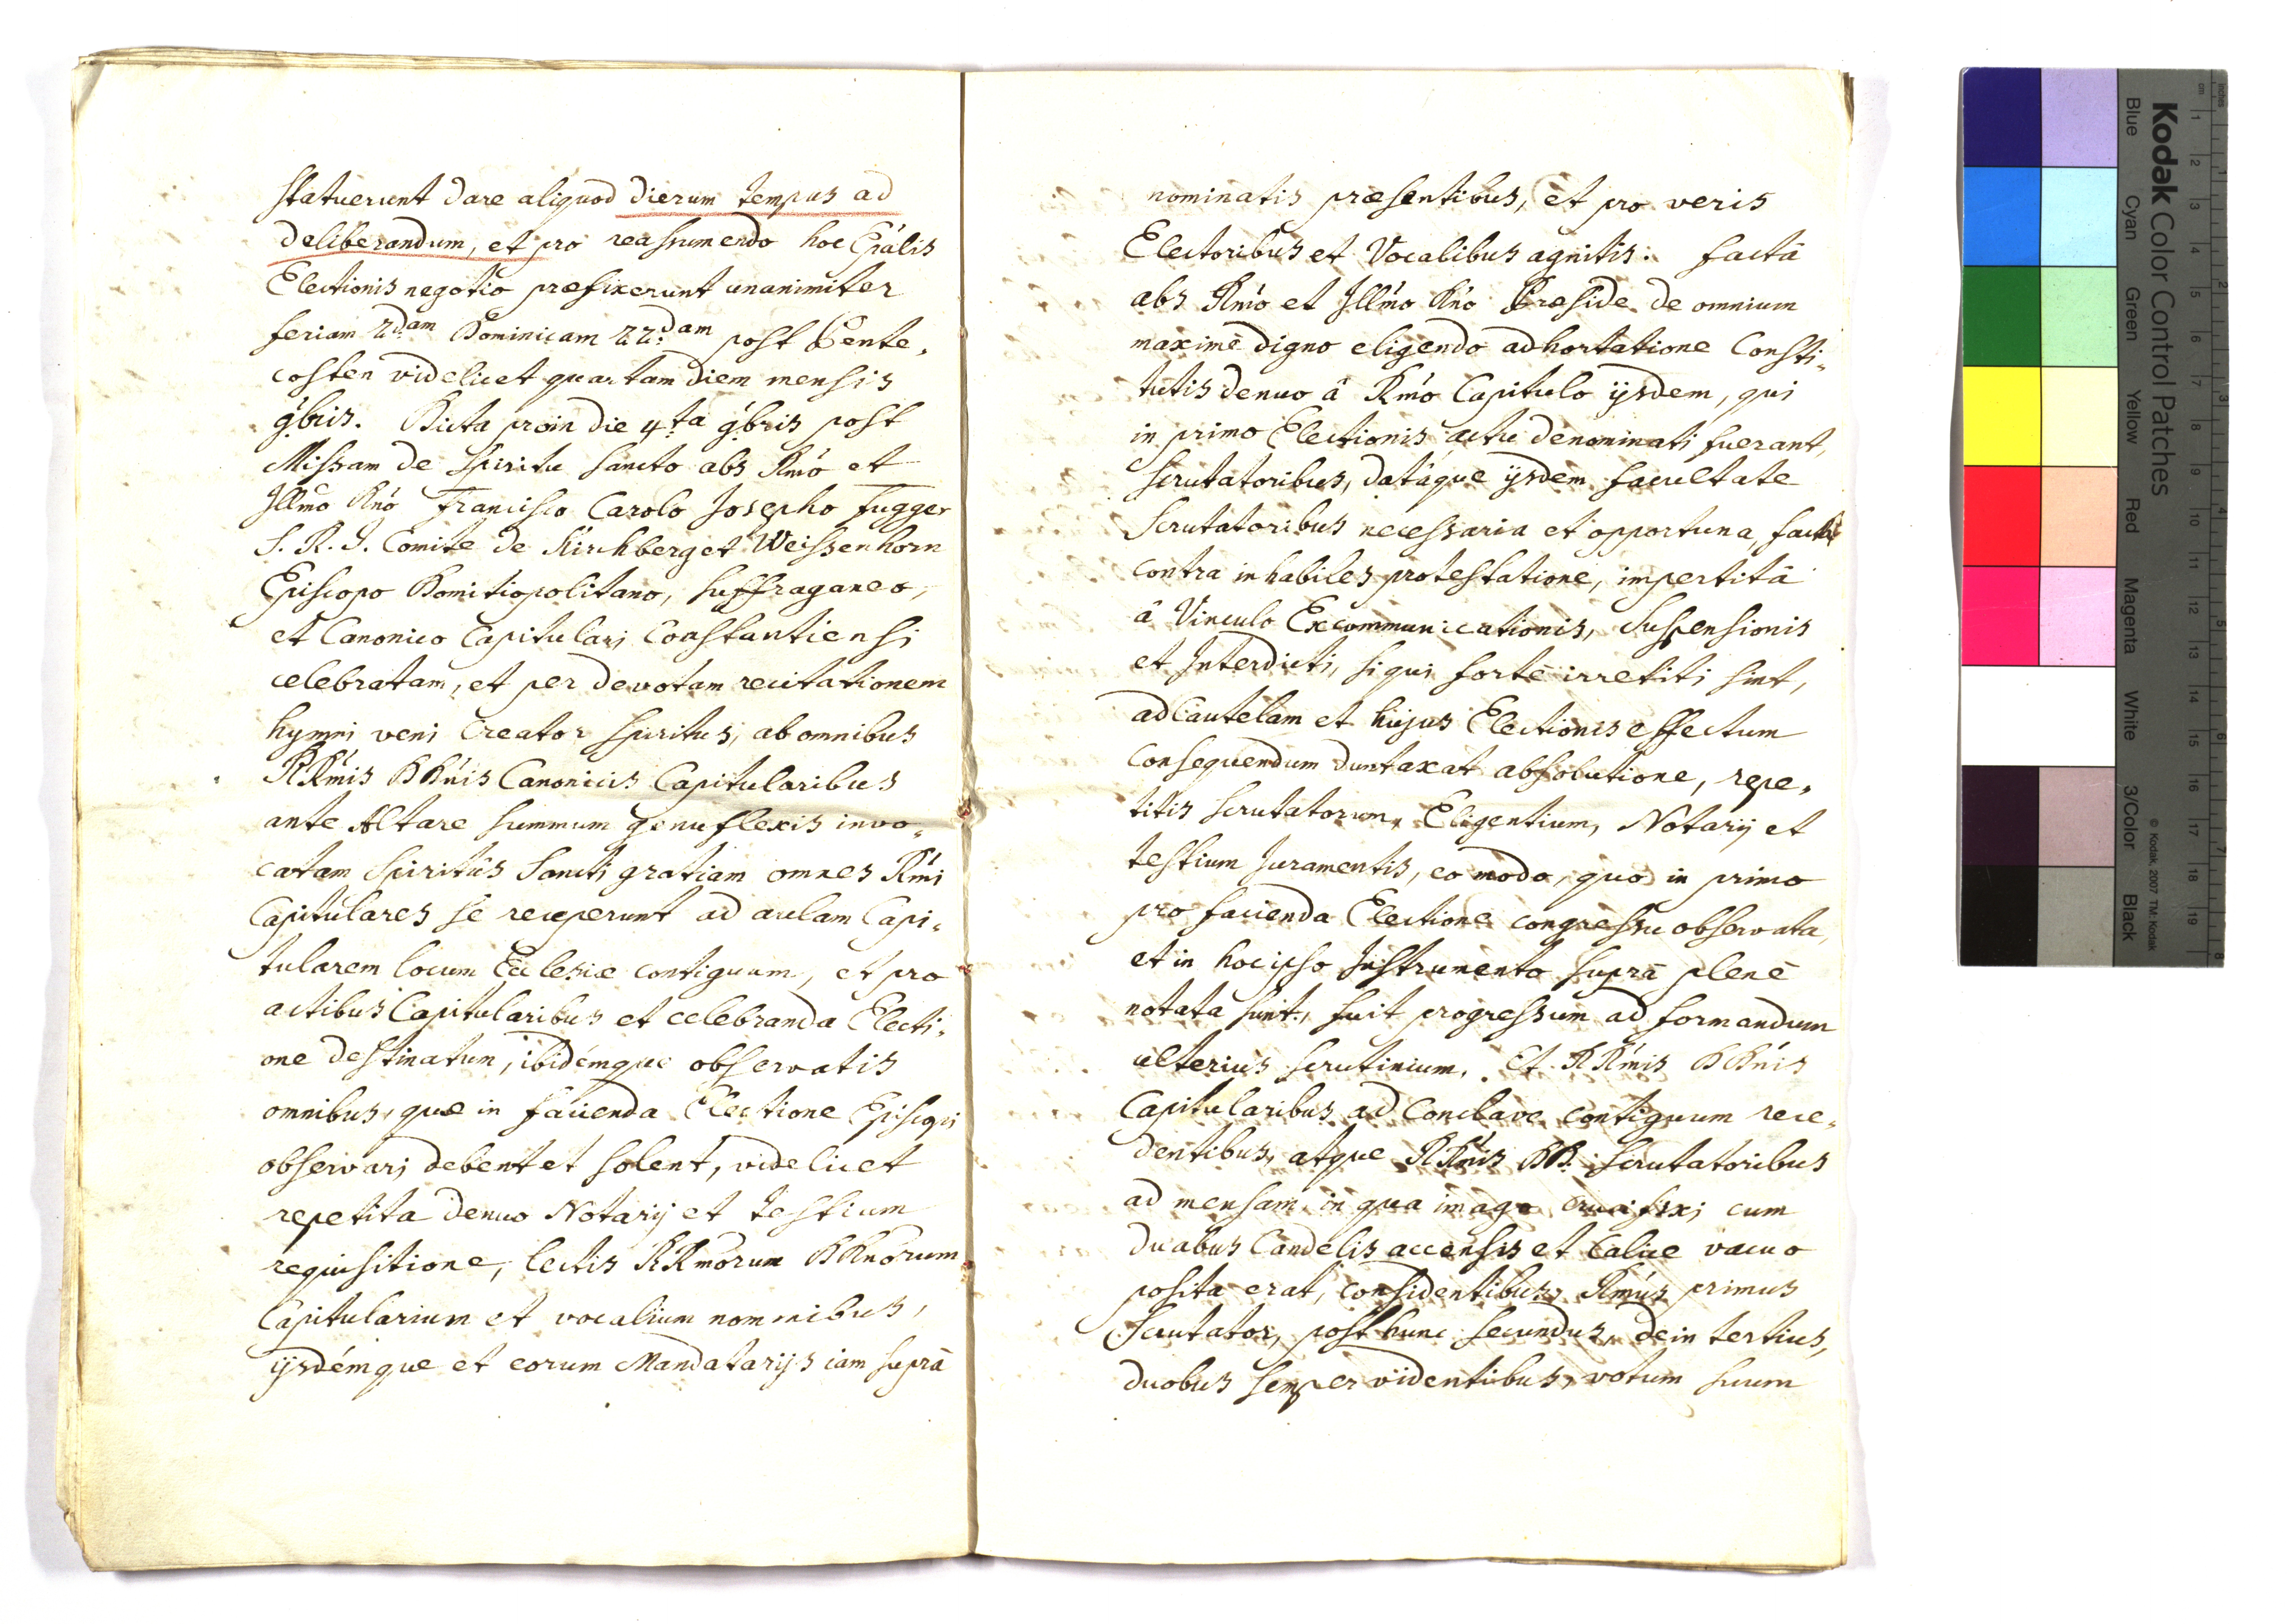 statuerunt dare aliquod dierum tempus ad
deliberandum, et pro reassumendo hoc Epālis
Electionis negotio praefixerunt unanimiter
feriam 2dam Dominicam 22dam post Pente„
costen videlicet quartam diem mensis
9bris. Dicta proin die 4ta 9bris post
Missam de Spiritu sancto abs Rm̃o et
Illm̃o Dño Francisco Carolo Josepho Fugger
S. R. I. Comite de Kirchberg et Weissenhorn
Episcopo Domitiopolitano, suffraganeo,
et Canonico Capitulari Constantiensi
celebratam, et per devotam recitationem
hymni veni Creator Spiritus, ab omnibus
RRm̃is DDñis Canonicis Capitularibus
ante Altare summum genuflexis invo„
catam Spiritûs Sancti gratiam omnes Rm̃i
Capitulares se receperunt ad aulam Capi„
tularem locum Ecclesiae contiguum, et pro
actibus Capitularibus et celebranda Electi„
one destinatum, ibidémque observatis
omnibus, quae in facienda Electione Episcopi
observari debent et solent, videlicet
repetita denuo Notarij et testium
requisitione, lectis RRm̃orum DDñorum
Capitularium et vocalium nominibus,
ijsdémque et eorum Mandatarijs iam suprà
nominatis praesentibus, et pro veris
Electoribus et Vocalibus agnitis: factâ
abs Rm̃o et Illm̃o Dño Praeside de omnium
maximè digno eligendo adhortatione Consti„
tutis denuo â Rm̃o Capitulo ijsdem, qui
in primo Electionis actu denominati fuerant,
scrutatoribus, datáque ijsdem facultate
Scrutatoribus necessaria et opportuna, factâ
contra inhabiles protestatione, impertitâ
â Vinculo Excommunicationis, Suspensionis
et Interdicti, si qui fortè irretiti sint,
ad Cautelam et hujus Electionis effectum
consequendum duntaxat absolutione, repe„
titis scrutatorum, Eligentium, Notarij et
testium Juramentis, eo modo, quo in primo
pro facienda Electione congressu observata,
et in hoc ipso Instrumento suprà plenè
notata sunt, fuit progressum ad formandum
ulterius scrutinium. Et RRm̃is DDñis
Capitularibus ad Conclave contiguum rece„
dentibus, atque RRm̃is DD. Scrutatoribus
ad mensam, in qua imago crucifixi cum
duabus Candelis accensis et Calice vacuo
posita erat, considentibus, Rm̃us primus
Scrutator, post hunc secundus, dein tertius,
duobus semper videntibus, votum suum
Kodak Color Control Patches
Blue Cyan Green Yellow Red Magenta White 3/Color Black
© Kodak, 2007 TM: Kodak
inches 1 2 3 4 5 6 7 8
cm 1 2 3 4 5 6 7 8 9 10 11 12 13 14 15 16 17 18 19